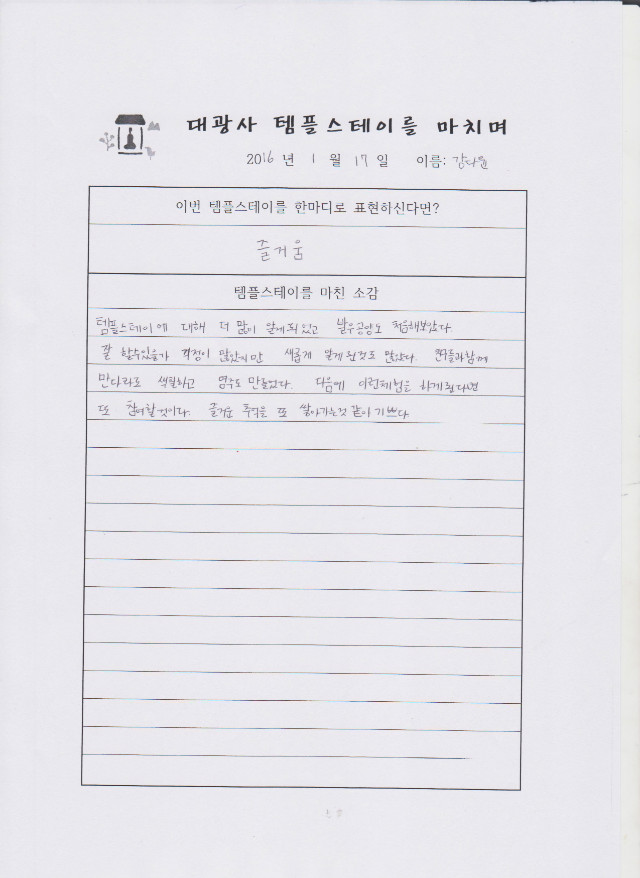 대광사 템플스테이를 마치며
2016 년 1 월 17 일 이름: 강다윤
이번 템플스테이를 한마디로 표현하신다면?
즐거움
템플스테이를 마친 소감
템플스테이에 대해 더 많이 알게 되었고 발우공양도 처음해보았다.
잘 할수있을까 걱정이 많았지만 새롭게 알게된것도 많았다. 친구들과함께
만다라도 색칠하고 염주도 만들었다. 다음에 이런체험을 하게된다면
또 참여할것이다. 즐거운 추억을 또 쌓아가는것 같아 기쁘다.